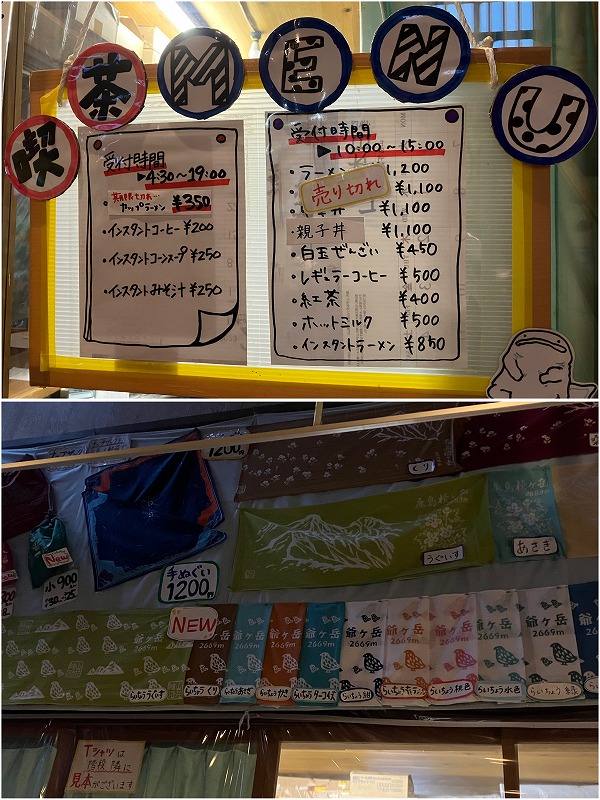 喫茶MENU
受付時間
▶4:30～19:00
・期限切れ…カップラーメン ¥350
・インスタントコーヒー ¥200
・インスタントコーンスープ ¥250
・インスタントみそ汁 ¥250
受付時間
▶10:00～15:00
・ラーメン 1,200
売り切れ
¥1,100
丼 ¥1,100
・親子丼 ¥1,100
・白玉ぜんざい ¥450
・レギュラーコーヒー ¥500
・紅茶 ¥400
・ホットミルク ¥500
・インスタントラーメン ¥850
1200円
くり
鹿島槍ヶ岳
2889m
うぐいす
あさぎ
New
小 900
手ぬぐい
1200円
NEW
爺ヶ岳 2669m
爺ヶ岳 2669m
爺ヶ岳 2669m
爺ヶ岳 2669m
爺ヶ岳 2669m
らいちょううぐいす
らいちょう くり
らいちょう かき
らいちょう ターコイズ
らいちょう 紺
らいちょう 桃色
らいちょう 水色
らいちょう 緑
Tシャツは
階段隣に
見本がございます